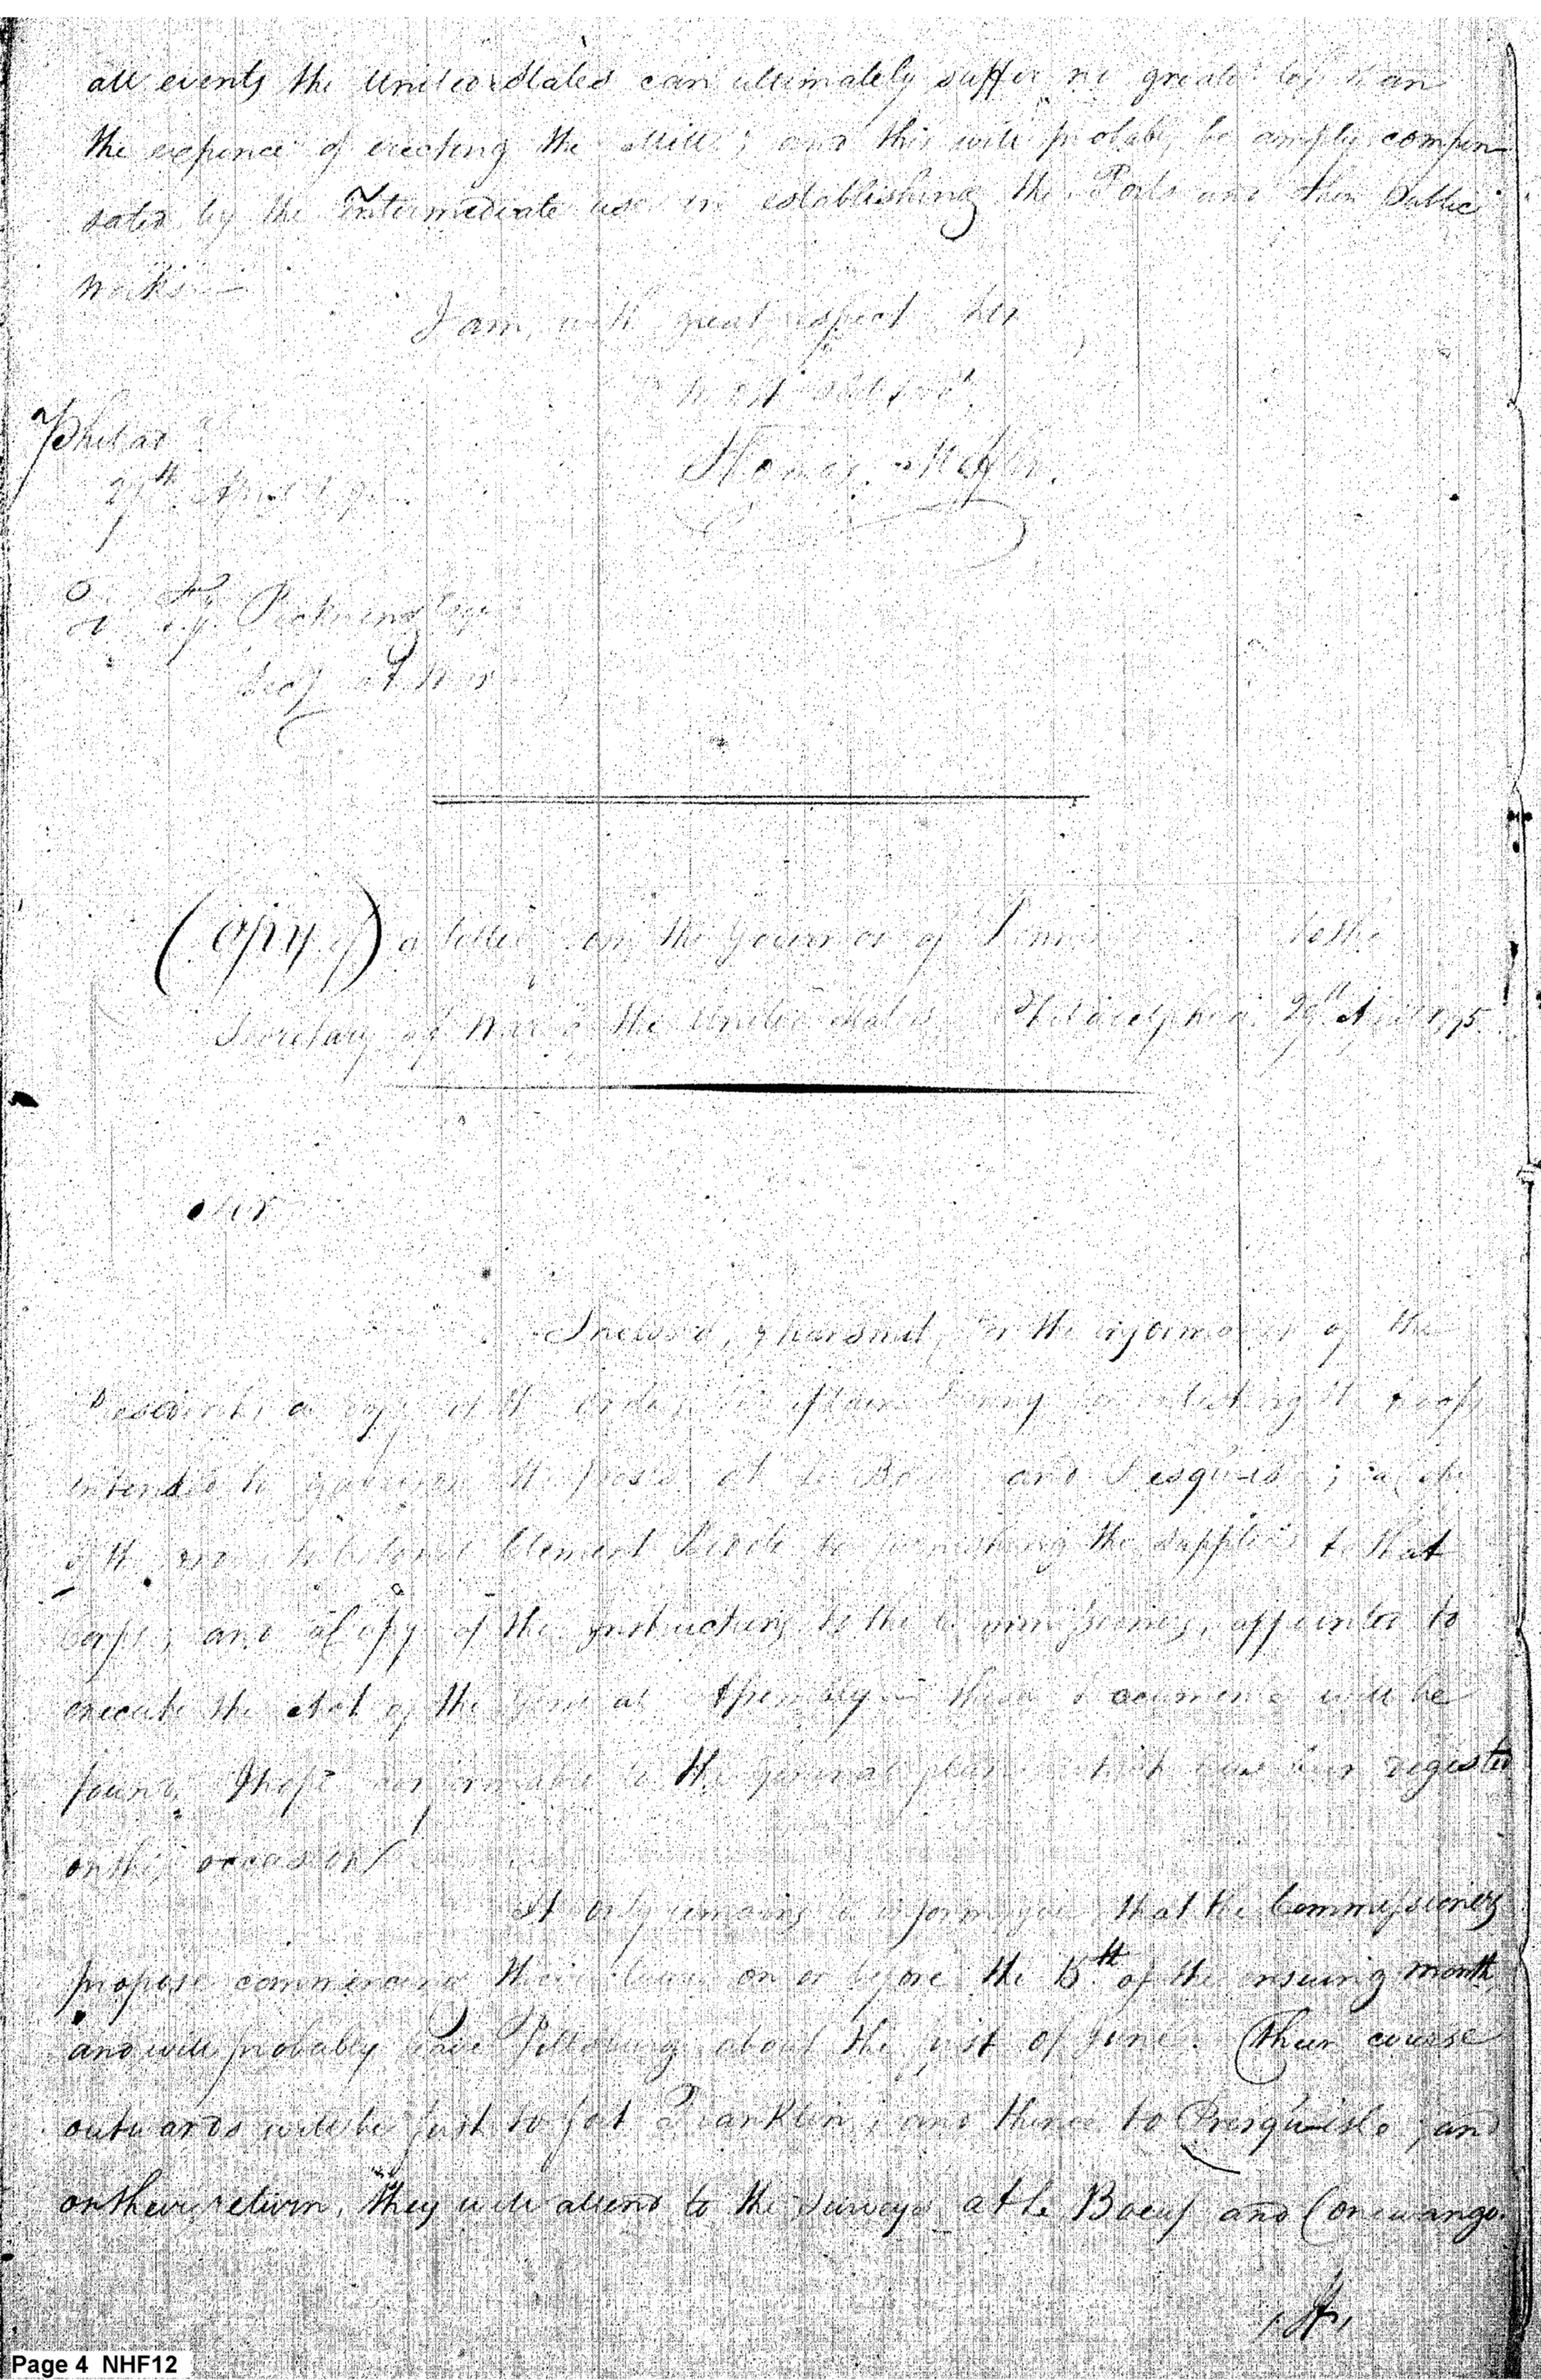 all events the United States can ultimately suffer no greater loss than
the expence of erecting the Mill; and this will probably be amply compen
sated by the Intermediate use in establishing the Posts and other Public
works.—
I am, with great respect, Sir
most Obt Servt
Thomas Mifflin.
Philad
29th April 179
To Ty. Pickering Esqr
Secy at War
(Copy of) a letter from the Governor of Penn to the
Secretary of War of the United States Philadelphia 29th April 1795
Sir
Inclosed, I transmit, for the information of the
President, a copy of the orders to Captain Denny for enlisting the troops
intended to garrison the posts at Le Boeuf and Presquisle; a
of the to Colonel Clement Biddle for furnishing the supplies to that
Corps; and a Copy of the Instructions to the Commissioners, appointed to
execute the Act of the General Assembly— these documents will be
found, I hope conformable to the general plan which has been digested
on this occasion/
It only remains to inform you that the Commissioners
propose commencing their tour on or before the 15th of the ensuing month,
and will probably leave Pittsburg about the first of June. Their course
outwards will be first to fort Franklin; and thence to Presquisle; and
on their return, they will attend to the Surveys at Le Boeuf and Conewango.
Page 4 NHF12